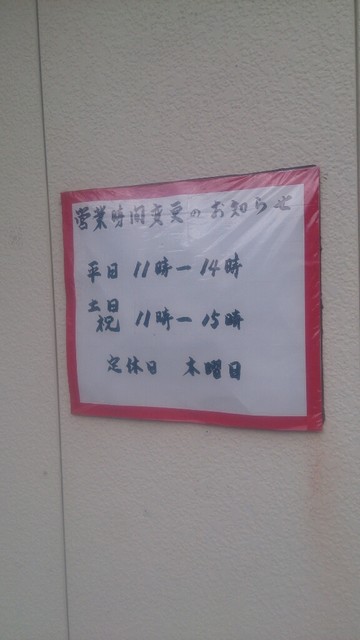 営業時間変更のお知らせ
平日 11時ー14時
土日祝 11時ー15時
定休日 木曜日